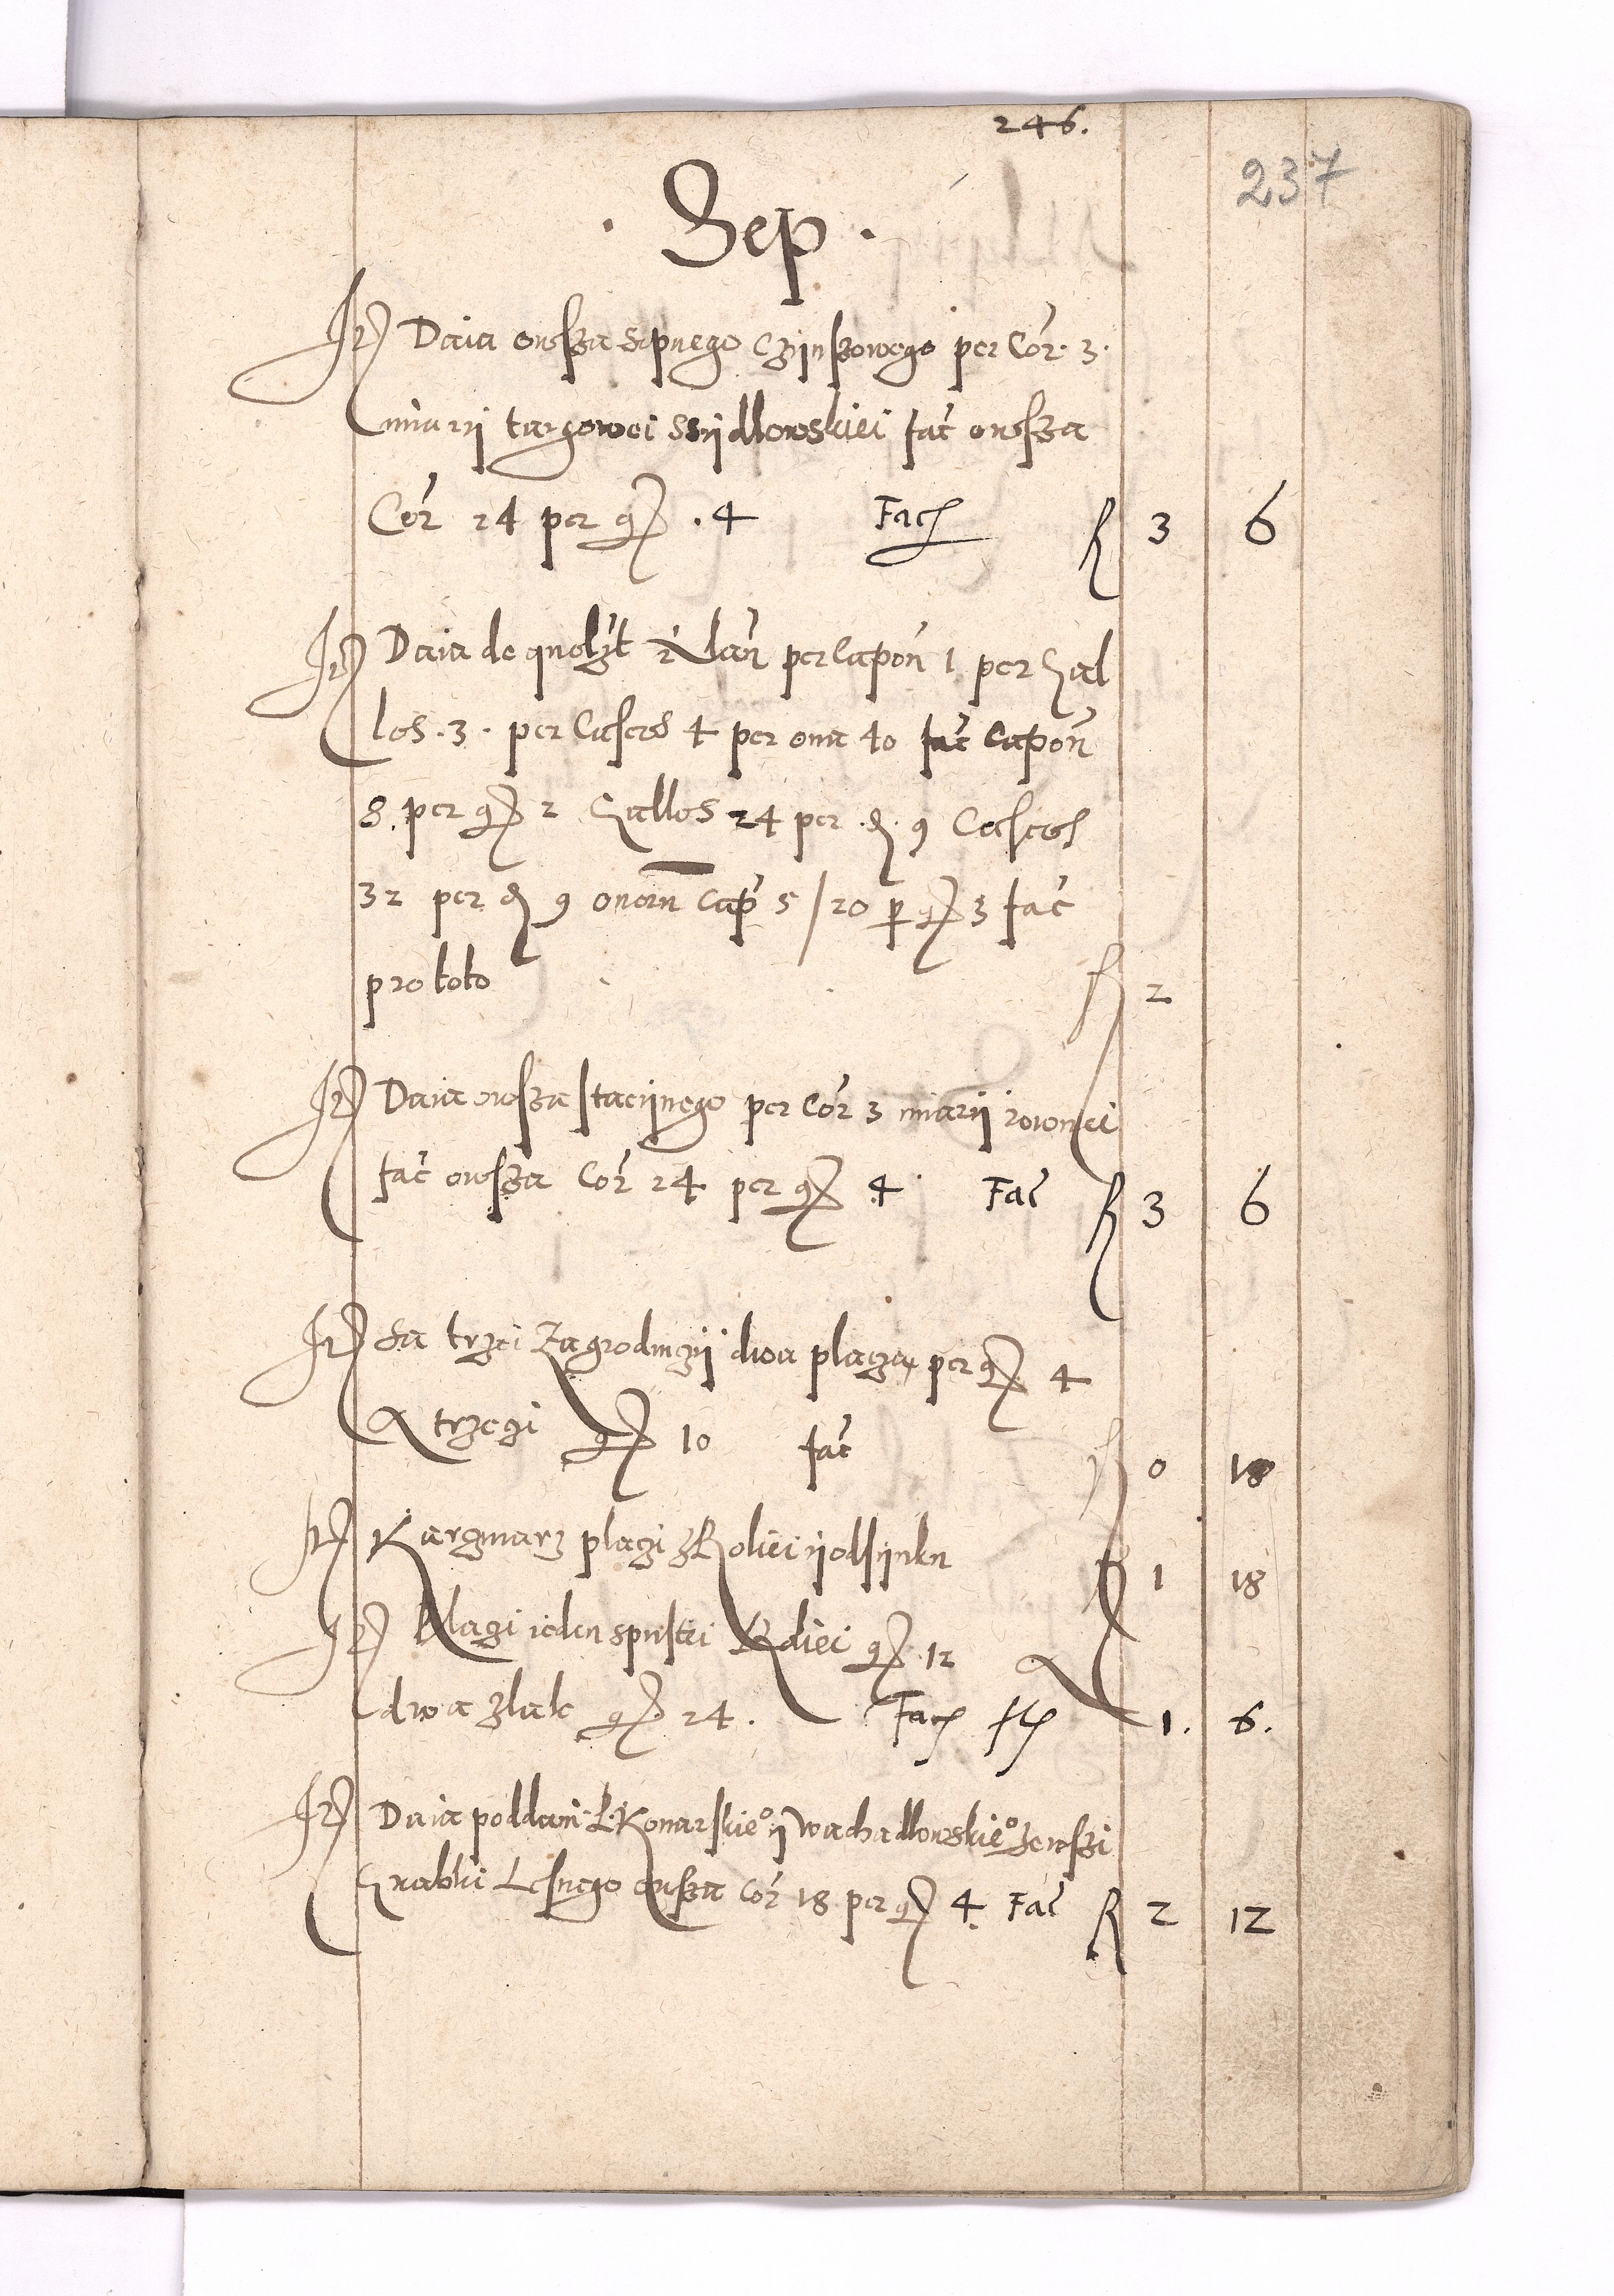 246.
237
. Sep .
It Daia owsza sepnego Czijnszowego per Cor. 3.
miarij targowei Ssijdlowskiei fac owsza
Cor 24 per gr . 4 Fac fl 3 6
It Daia de quolibet laneo per Capon 1 per Gal
los . 3 . per Caseos 4 per oua 40 fac Capon
8. per gr 2 Gallos 24 per . d . 9 Caseos
32 per d 9 ouorum Cap 5 / 20 p gr 3 fac
pro toto fl 2
It Daia owsza stacijnego per Cor 3 miarij rownei
fac owsza Cor 24 per gr 4 Fac fl 3 6
It Sa trzei Zagrodniczij dwa placza per gr 4
A trzeczi gr 10 fac fl 0 18
It Karczmarz placzi z Roliei ij odsijnku fl 1 18
It Placzi ieden spustei Roliei gr 12
dwa zlak gr 24 . Fac fl 1. 6.
It Daia poddani P. Konarskieo ij Wachadlowskieo zewszi
Grabki Lesnego owsza Cor 18 per gr 4 Fac fl 2 12